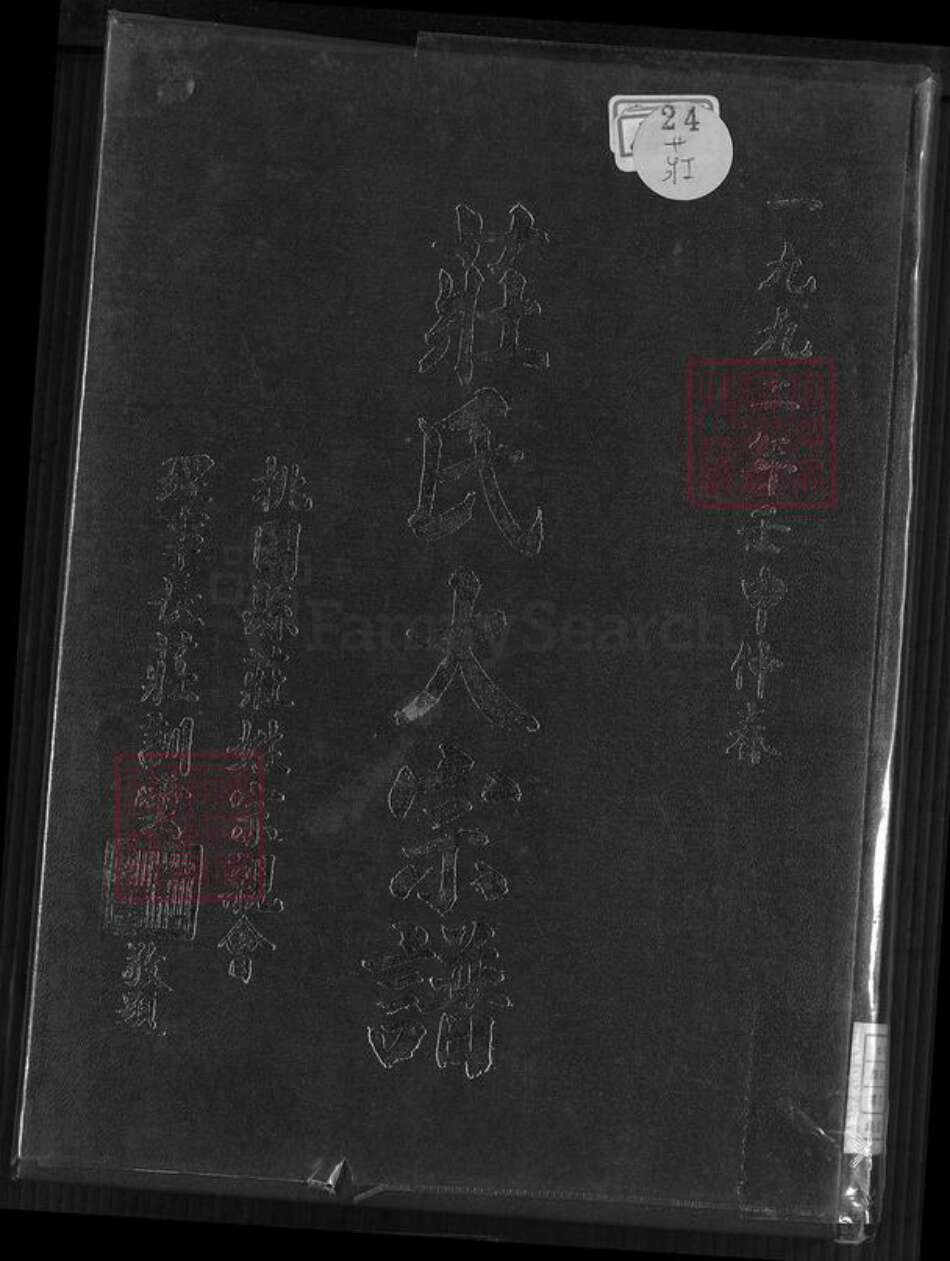 一九九二年壬申仲春
莊氏大宗譜
桃園縣莊姓宗親會
理事長莊訓
敬題
24
艹
壯
FamilySearch